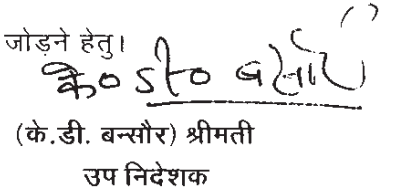 जोड़ने हेतु।
के० डी० बन्सौर
(के.डी. बन्सौर) श्रीमती
उप निदेशक